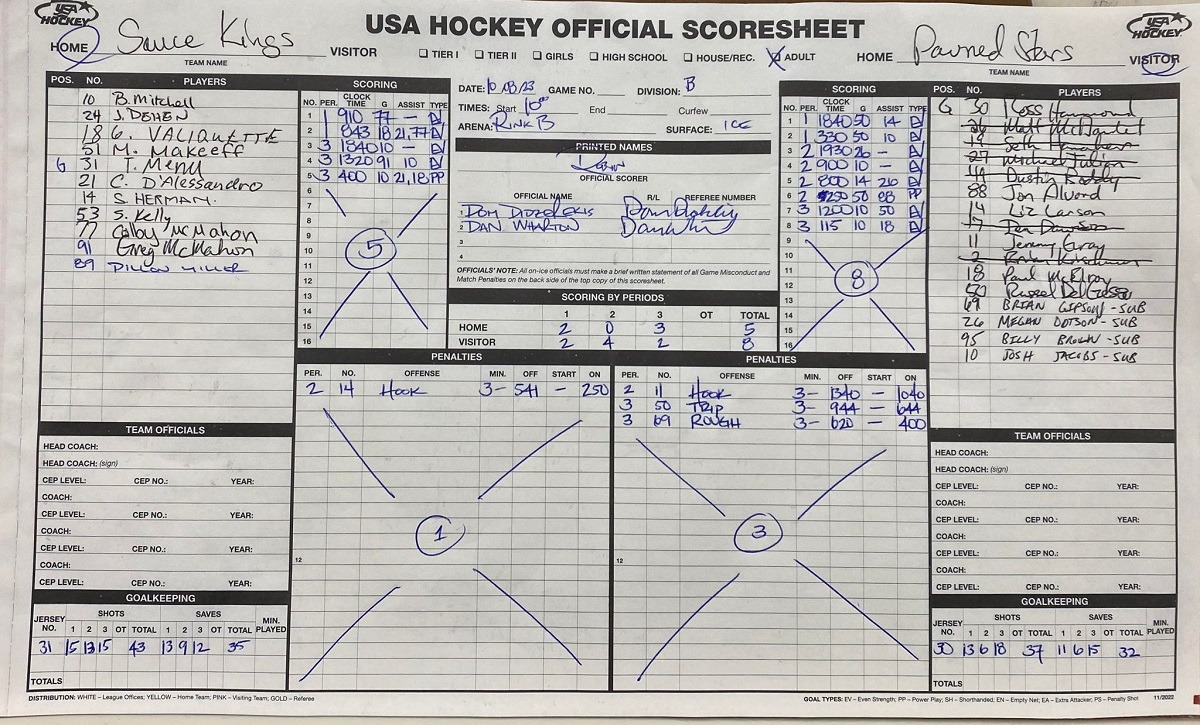 USA HOCKEY
USA HOCKEY OFFICIAL SCORESHEET
USA HOCKEY
HOME Sauce Kings VISITOR
TEAM NAME
TIER I TIER II GIRLS HIGH SCHOOL HOUSE/REC. ADULT
HOME Pawned Stars VISITOR
TEAM NAME
POS. NO. PLAYERS
10 B. Mitchell
24 J. DEHEN
18 G. VALIQUETTE
51 M. Makeeff
G 31 T. Menu
21 C. D'Alessandro
14 S HERMAN
53 S. Kelly
77 Colby McMahon
91 Greg McMahon
89 DILLON MILLER
SCORING
NO. PER. CLOCK TIME G ASSIST TYPE
1 1 910 77 — EV
2 1 843 18 21,77 EV
3 3 1840 10 — EV
4 3 1320 91 10 EV
5 3 400 10 21,18 PP
6
7
8
9
10
11
12
13
14
15
16
5
DATE: 10/18/23 GAME NO. DIVISION: B
TIMES: Start 10 End Curfew
ARENA: RINK B SURFACE: ICE
PRINTED NAMES
OFFICIAL SCORER
OFFICIAL NAME R/L REFEREE NUMBER
1
2 DAN WHARTON
3
4
OFFICIALS' NOTE: All on-ice officials must make a brief written statement of all Game Misconduct and
Match Penalties on the back side of the top copy of this scoresheet.
SCORING BY PERIODS
1 2 3 OT TOTAL
HOME 2 0 3 5
VISITOR 2 4 2 8
SCORING
NO. PER. CLOCK TIME G ASSIST TYPE
1 1 1840 50 14 EV
2 1 330 50 10 EV
3 2 1930 26 — EV
4 2 900 10 — EV
5 2 800 14 26 EV
6 2 1250 50 88 PP
7 3 1200 10 50 EV
8 3 115 10 18 EV
9
10
11
12
13
14
15
16
8
POS. NO. PLAYERS
G 30 Ross Hammond
26 Matt McDaniel
19 Seth
27 Michael Julian
44 Dustin Roddy
88 Jon Alvord
14 Liz Carson
17 Dawson
11 Jeremy Gray
2
18 Paul McElroy
50 Russel DelGrosso
69 BRIAN GIPSON - SUB
26 MEGAN DOTSON - SUB
95 BILLY BROWN - SUB
10 JOSH JACOBS - SUB
PENALTIES
PER. NO. OFFENSE MIN. OFF START ON
2 14 HOOK 3- 541 — 250
12
1
PENALTIES
PER. NO. OFFENSE MIN. OFF START ON
2 11 HOOK 3- 1340 — 1040
3 50 TRIP 3- 944 — 644
3 69 ROUGH 3- 620 — 400
12
3
TEAM OFFICIALS
HEAD COACH:
HEAD COACH: (sign)
CEP LEVEL: CEP NO.: YEAR:
COACH:
CEP LEVEL: CEP NO.: YEAR:
COACH:
CEP LEVEL: CEP NO.: YEAR:
COACH:
CEP LEVEL: CEP NO.: YEAR:
GOALKEEPING
JERSEY NO. SHOTS 1 2 3 OT TOTAL SAVES 1 2 3 OT TOTAL MIN. PLAYED
31 15 13 15 43 13 9 12 35
TOTALS
TEAM OFFICIALS
HEAD COACH:
HEAD COACH: (sign)
CEP LEVEL: CEP NO.: YEAR:
COACH:
CEP LEVEL: CEP NO.: YEAR:
COACH:
CEP LEVEL: CEP NO.: YEAR:
COACH:
CEP LEVEL: CEP NO.: YEAR:
GOALKEEPING
JERSEY NO. SHOTS 1 2 3 OT TOTAL SAVES 1 2 3 OT TOTAL MIN. PLAYED
30 13 6 18 37 11 6 15 32
TOTALS
DISTRIBUTION: WHITE – League Offices; YELLOW – Home Team; PINK – Visiting Team; GOLD – Referee
GOAL TYPES: EV – Even Strength; PP – Power Play; SH – Shorthanded; EN – Empty Net; EA – Extra Attacker; PS – Penalty Shot 11/2022